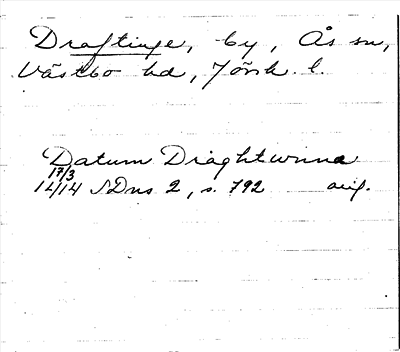 Draftinge, by, Ås sn,
Västbo hd, Jönk. l.
Datum Draghtunna
17/3
1414 SDns 2, s. 792 avig.